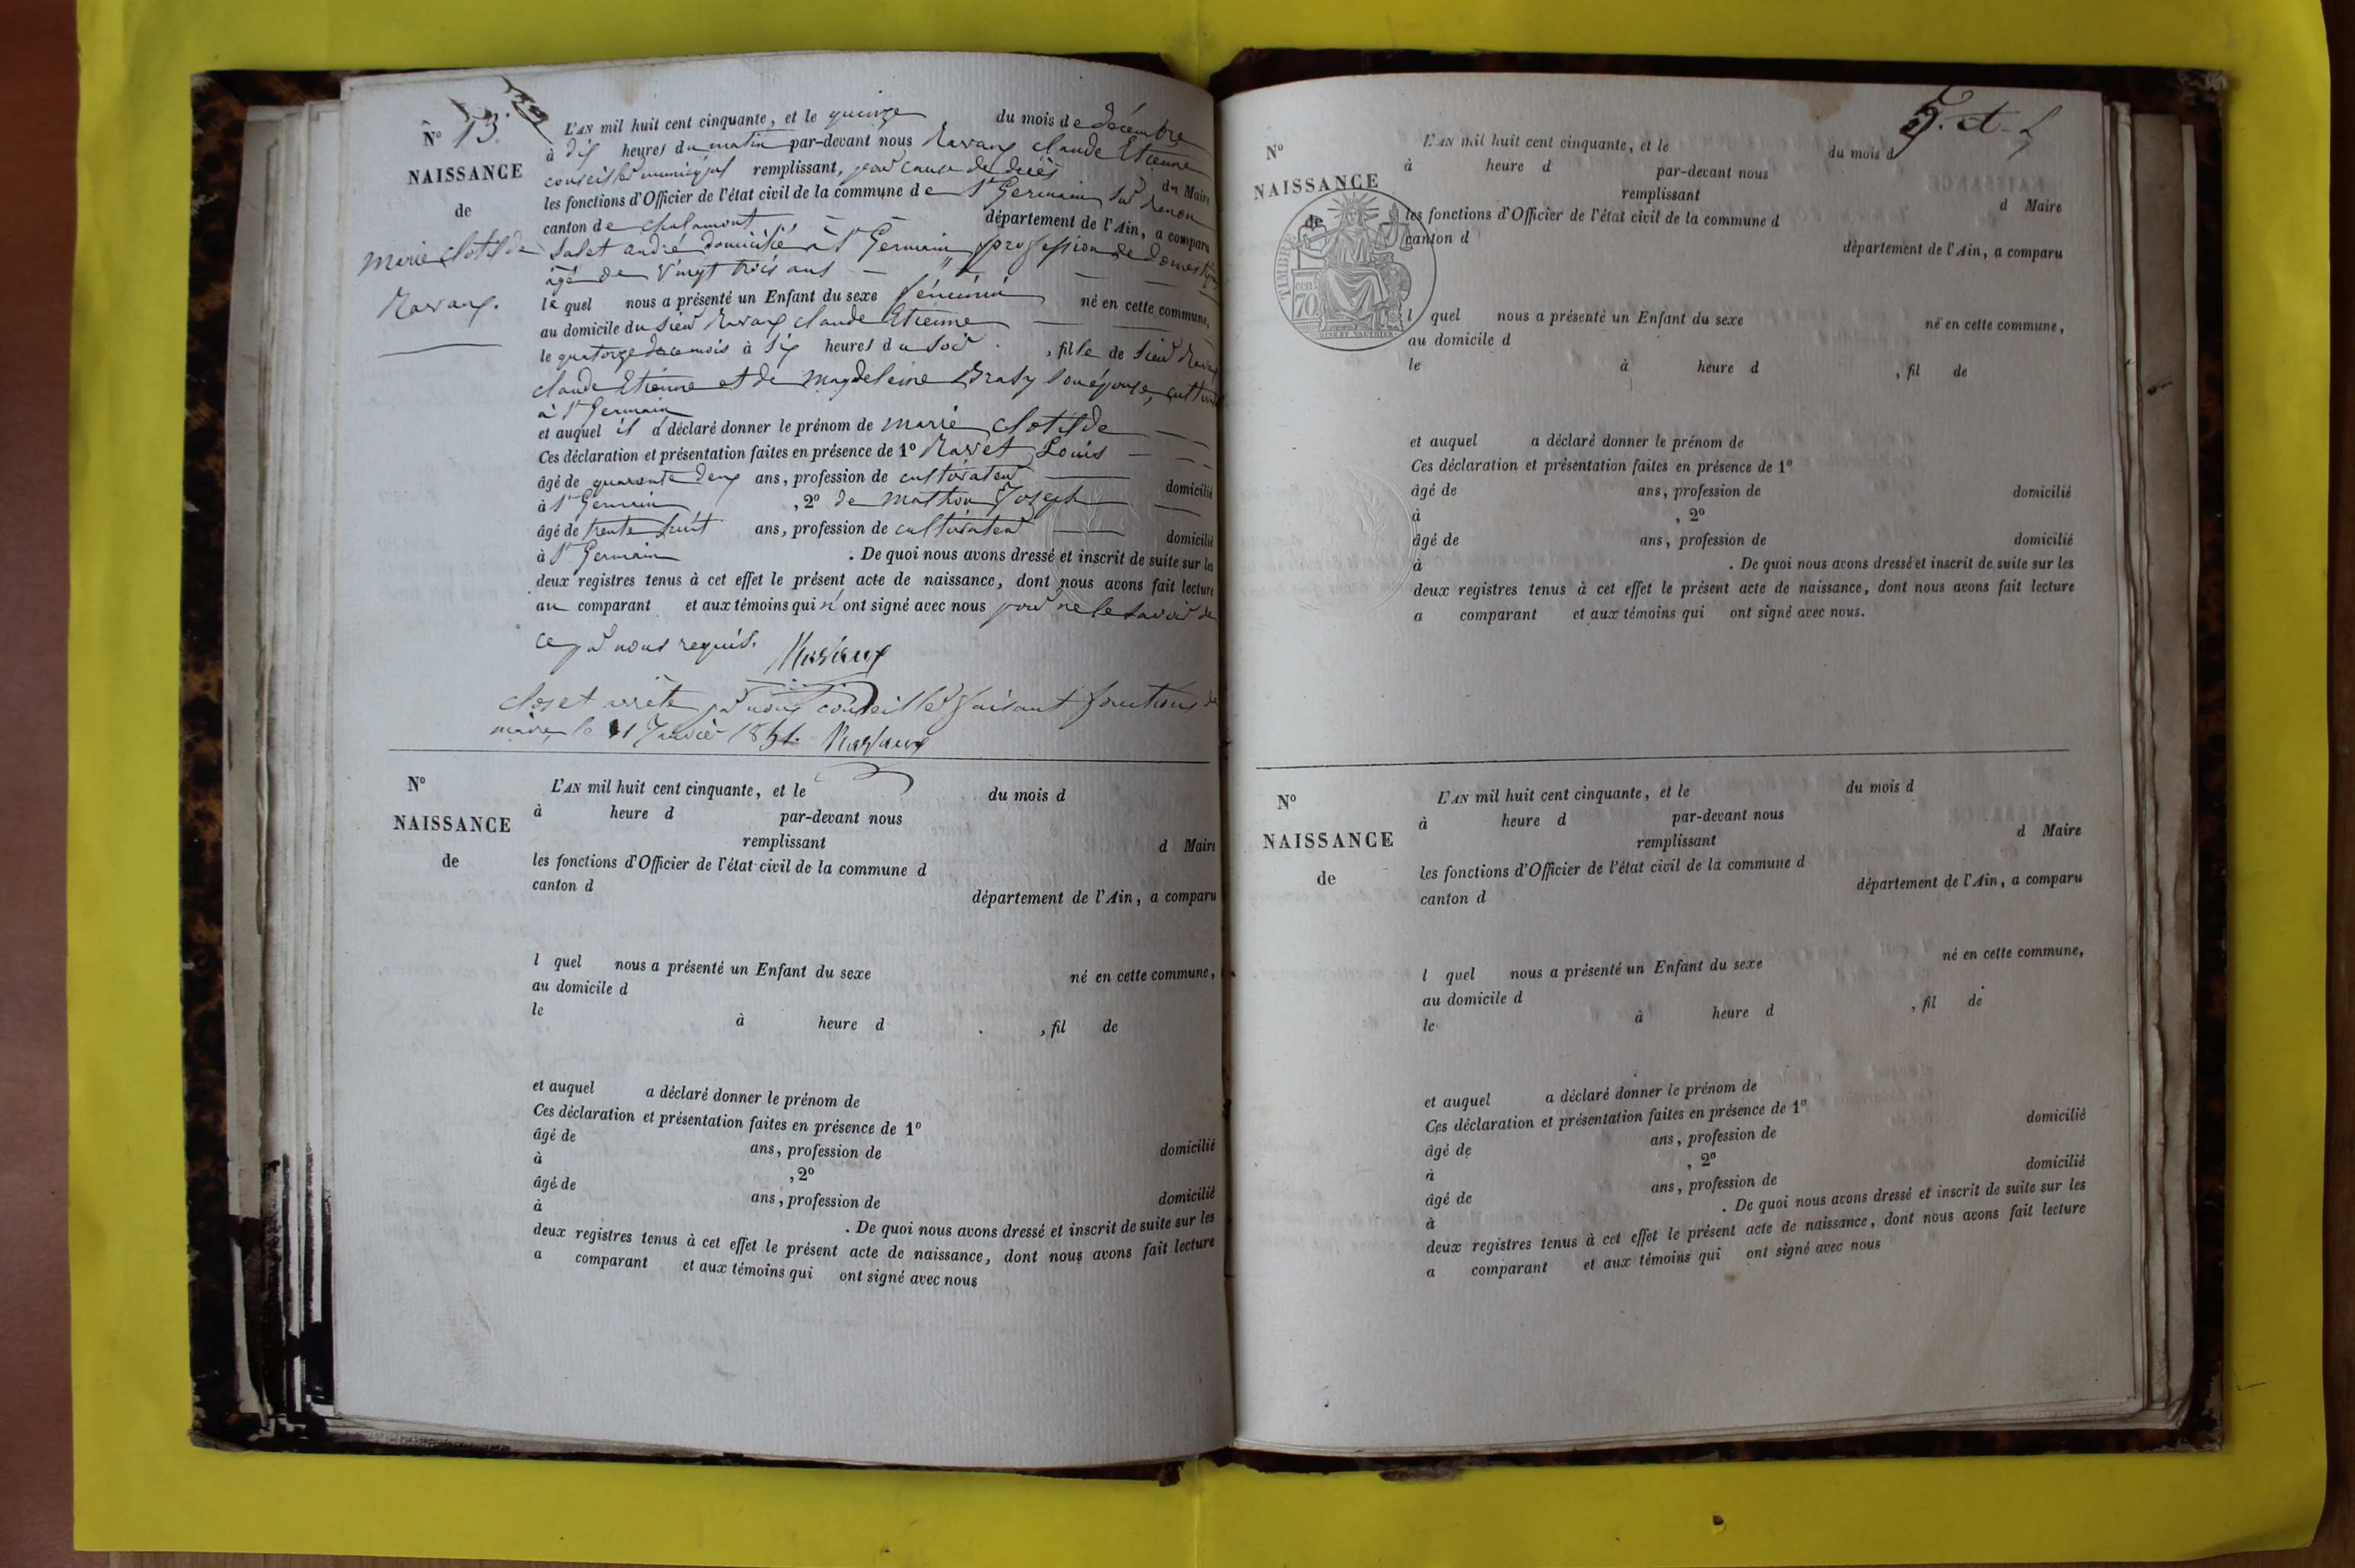 N° 13.
NAISSANCE
de
marie Clotilde
Ravaux.
L'AN mil huit cent cinquante, et le quinze du mois de décembre
à dix heures du matin par-devant nous Ravaux claude Etienne
conseiller municipal remplissant, pour cause de décès du Maire
les fonctions d'Officier de l'état civil de la commune de St Germain sur Renon
canton de chalamont département de l'Ain, a comparu
Salet andré domicilié à St Germain profession de Domestique
âgé de vingt trois ans
le quel nous a présenté un Enfant du sexe féminin né en cette commune,
au domicile du sieur Ravaux claude Etienne
le quatorze de ce mois à six heures du soir, fille de sieur Ravaux
claude Etienne et de magdeleine son épouse,
à St Germain
et auquel il a déclaré donner le prénom de marie clotilde
Ces déclaration et présentation faites en présence de 1° Ravet Louis
âgé de quarante deux ans, profession de cultivateur domicilié
à St Germain , 2° de mathon Joseph
âgé de trente huit ans, profession de cultivateur domicilié
à St Germain . De quoi nous avons dressé et inscrit de suite sur les
deux registres tenus à cet effet le présent acte de naissance, dont nous avons fait lecture
au comparant et aux témoins qui n'ont signé avec nous pour ne le savoir de
ce par nous requis. Ravaux
clos et arrêté par nous conseiller faisant fonctions de
maire, le 1 Janvier 1851. Ravaux
N°
NAISSANCE
de
L'AN mil huit cent cinquante, et le du mois d
à heure d par-devant nous
remplissant d Maire
les fonctions d'Officier de l'état civil de la commune d
canton d département de l'Ain, a comparu
l quel nous a présenté un Enfant du sexe né en cette commune,
au domicile d
le à heure d , fil de
et auquel a déclaré donner le prénom de
Ces déclaration et présentation faites en présence de 1°
âgé de ans, profession de domicilié
à , 2°
âgé de ans, profession de domicilié
à . De quoi nous avons dressé et inscrit de suite sur les
deux registres tenus à cet effet le présent acte de naissance, dont nous avons fait lecture
a comparant et aux témoins qui ont signé avec nous
N°
NAISSANCE
de
TIMBRE
70
cen
L'AN mil huit cent cinquante, et le du mois d
à heure d par-devant nous
remplissant d Maire
les fonctions d'Officier de l'état civil de la commune d
canton d département de l'Ain, a comparu
l quel nous a présenté un Enfant du sexe né en cette commune,
au domicile d
le à heure d , fil de
et auquel a déclaré donner le prénom de
Ces déclaration et présentation faites en présence de 1°
âgé de ans, profession de domicilié
à , 2°
âgé de ans, profession de domicilié
à . De quoi nous avons dressé et inscrit de suite sur les
deux registres tenus à cet effet le présent acte de naissance, dont nous avons fait lecture
a comparant et aux témoins qui ont signé avec nous.
N°
NAISSANCE
de
L'AN mil huit cent cinquante, et le du mois d
à heure d par-devant nous
remplissant d Maire
les fonctions d'Officier de l'état civil de la commune d
canton d département de l'Ain, a comparu
l quel nous a présenté un Enfant du sexe né en cette commune,
au domicile d
le à heure d , fil de
et auquel a déclaré donner le prénom de
Ces déclaration et présentation faites en présence de 1°
âgé de ans, profession de domicilié
à , 2°
âgé de ans, profession de domicilié
à . De quoi nous avons dressé et inscrit de suite sur les
deux registres tenus à cet effet le présent acte de naissance, dont nous avons fait lecture
a comparant et aux témoins qui ont signé avec nous